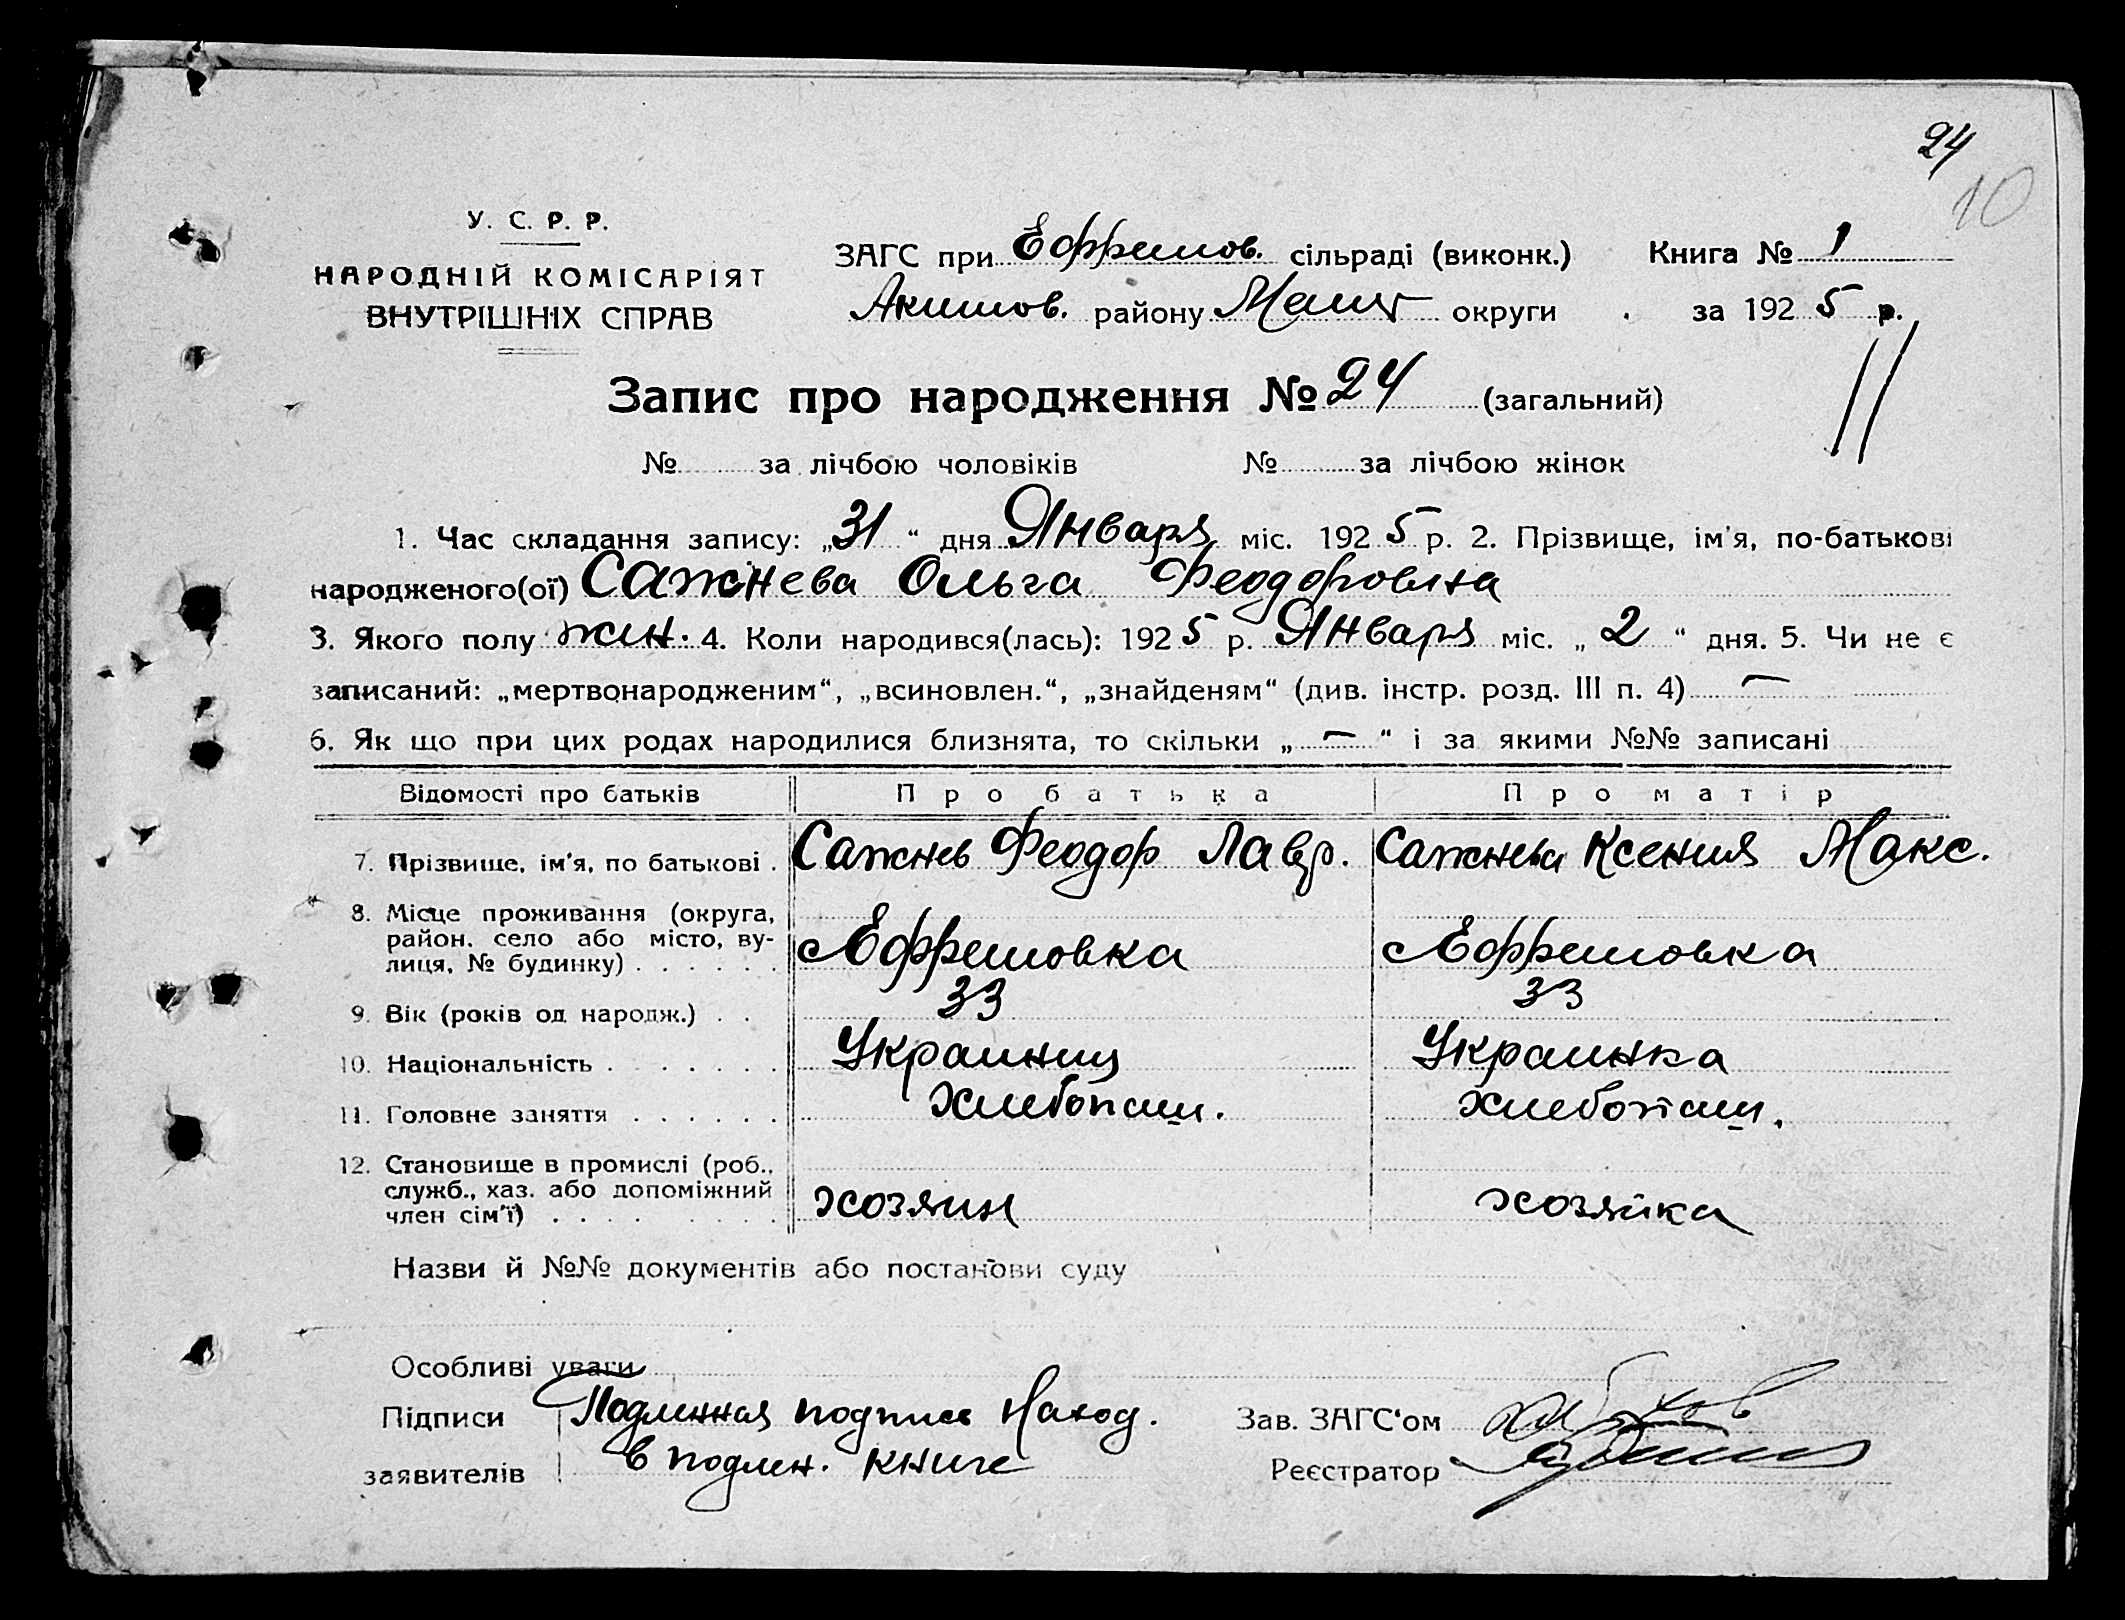 24
10
У. С. Р. Р.
НАРОДНІЙ КОМІСАРІЯТ
ВНУТРІШНІХ СПРАВ
ЗАГС при Ефремов. сільраді (виконк.) Книга № 1
Акимов. району Мелит округи за 1925 р.
Запис про народження № 24 (загальний)
№ за лічбою чоловіків № за лічбою жінок
1. Час складання запису: „31“ дня Января міс. 1925 р. 2. Прізвище, ім'я, по-батькові
народженого(ої) Сажнева Ольга Феодоровна
3. Якого полу жін. 4. Коли народився(лась): 1925 р. Января міс. „2“ дня. 5. Чи не є
записаний: „мертвонародженим“, „всиновлен.“, „знайденям“ (див. інстр. розд. III п. 4) —
6. Як що при цих родах народилися близнята, то скільки „—“ і за якими №№ записані
Відомості про батьків Про батька Про матір
7. Прізвище, ім'я, по батькові . Сажнев Феодор Лавр. Сажнева Ксения Макс.
8. Місце проживання (округа,
район, село або місто, ву-
лиця, № будинку) . . . . . . Ефремовка Ефремовка
9. Вік (років од народж.) . . 33 33
10. Національність . . . . . . . Украинец Украинка
11. Головне заняття . . . . . . Хлебопаш. хлебопаш.
12. Становище в промислі (роб.,
служб., хаз. або допоміжний
член сім'ї) . . . . . . . . хозяин хозяйка
Назви й №№ документів або постанови суду
Особливі уваги
Підписи Подлинная подпись наход. Зав. ЗАГС'ом
заявителів в подлен. книге Реєстратор